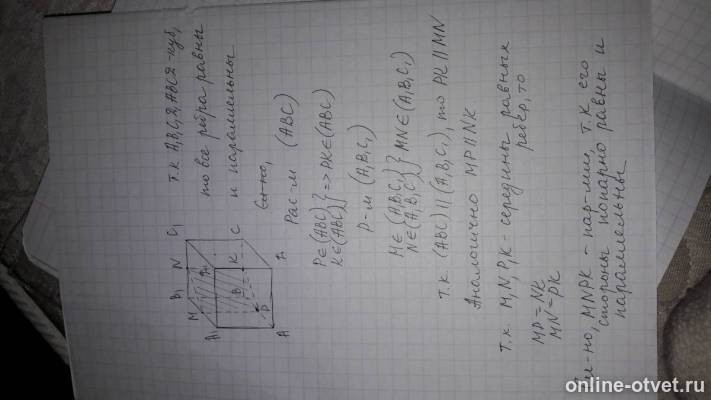 т.к A₁B₁C₁Д₁ABCД - куб,
то все ребра равны
и параллельны
Сл-но,
Рас-м (ABC)
P∈(ABC) } => PK∈(ABC)
K∈(ABC)
Р-м (A₁B₁C₁)
M∈(A₁B₁C₁) } MN∈(A₁B₁C₁)
N∈(A₁B₁C₁)
т.к (ABC)||(A₁B₁C₁), то PK||MN
Аналогично MP||NK
т.к M,N,P,K - середины равных
ребер, то
MP=NK
MN=PK
MNPK - пар-мм, т.к его
стороны попарно равны и
параллельны
B₁ N C₁
M Д₁
A₁
B K C
P
A Д
online-otvet.ru